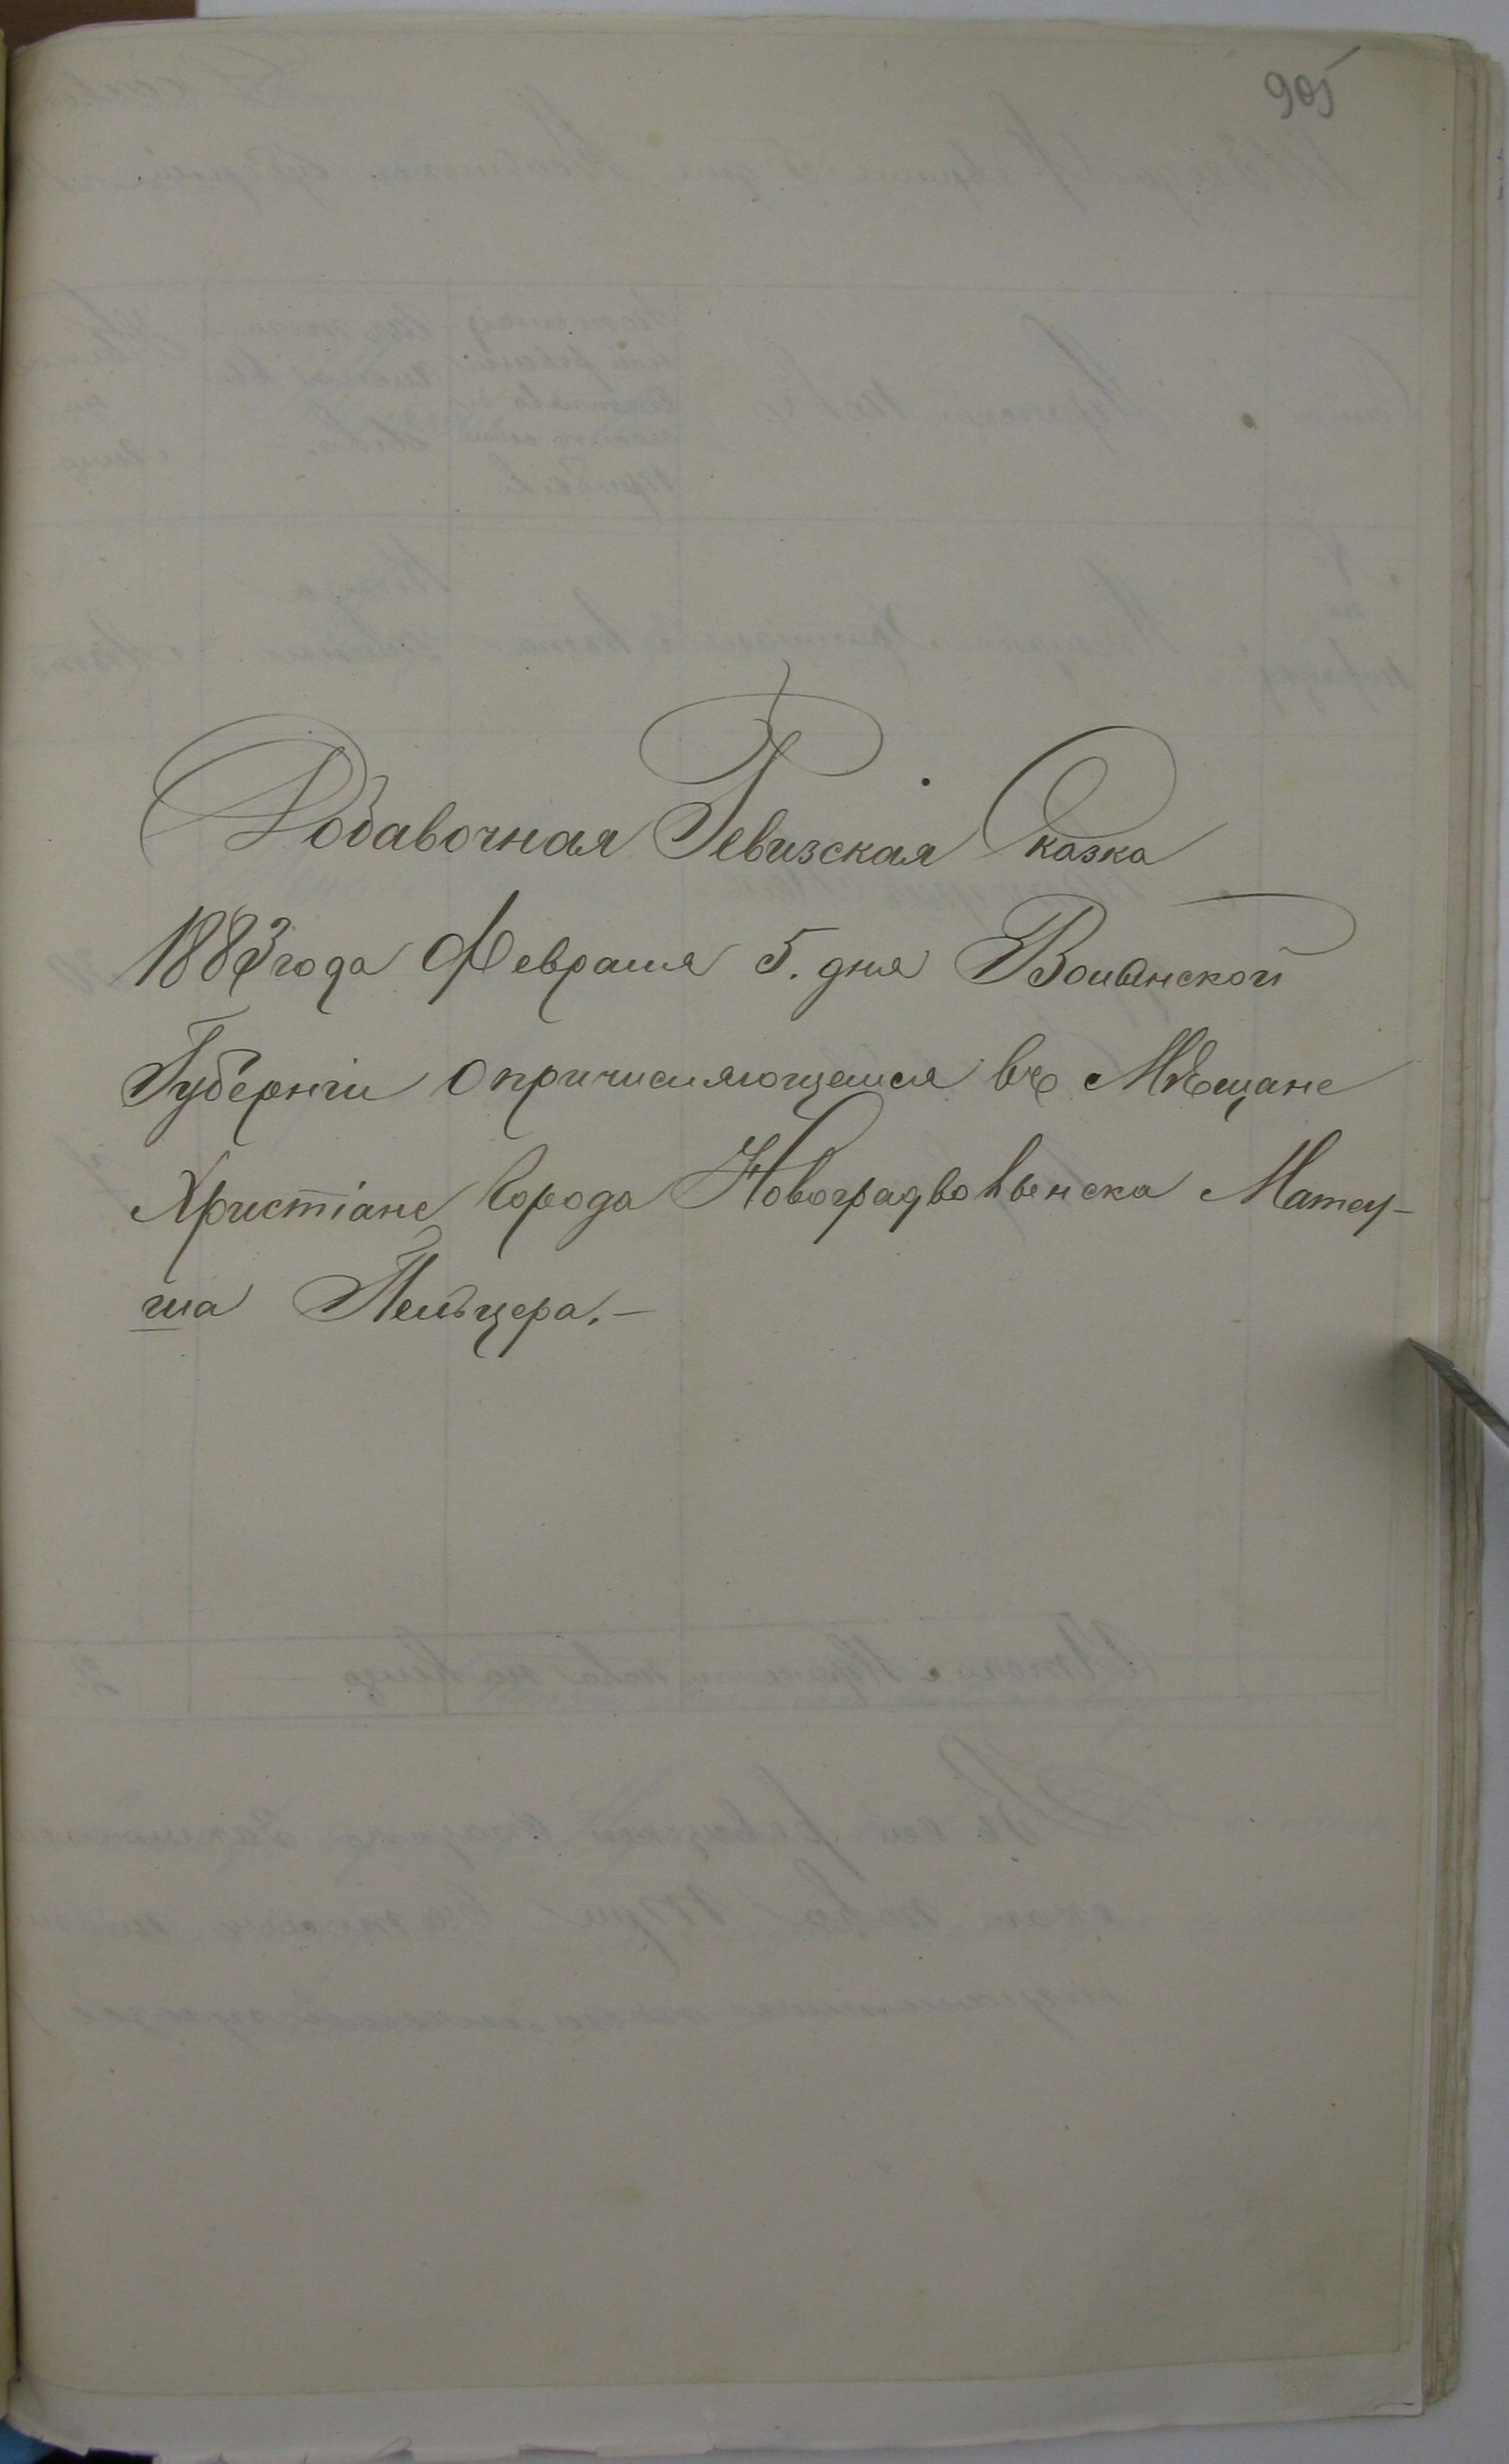 905
Добавочная Ревизская Сказка
1883 года Февраля 5. дня Волынской
Губерніи о причисляющемся въ Мѣщане
Христіане города Новоградволынска Матеу-
ша Пельцера.—